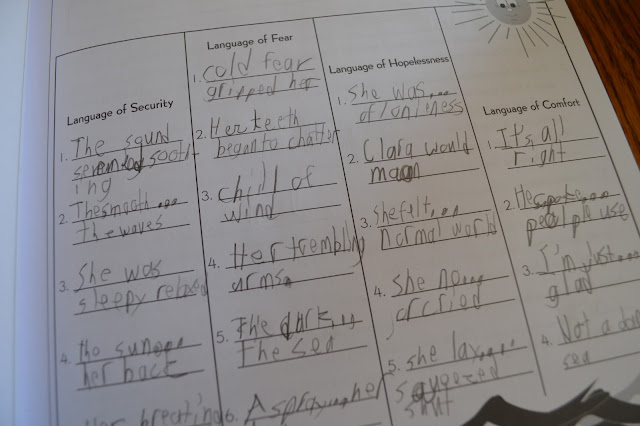 Language of Security
1. The sound
seremdey sooth
ing
2. The smooth...
the waves
3. She was
sleepy relaxed
4. the sun...
her back
Her breathing
Language of Fear
1. cold fear
gripped her
2. Her teeth
began to chatter
3. chill of
wind
4. Her trembling
arms.
5. The dark
the sea
6. A spray her
Language of Hopelessness
1. She was...
of lonliness
2. Clara would
3. She felt...
normal world
4. she no...
or cried
5. she lay....
sqyeezed
shut
Language of Comfort
1. It's all
right
2. He spoke...
3. I'm just...
glad
4. Not a
sea